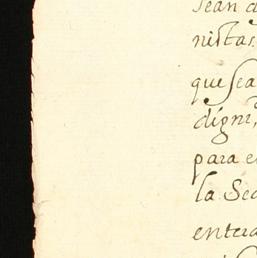 sean d
nistas
que sea
digni
para e
la Sed
entera